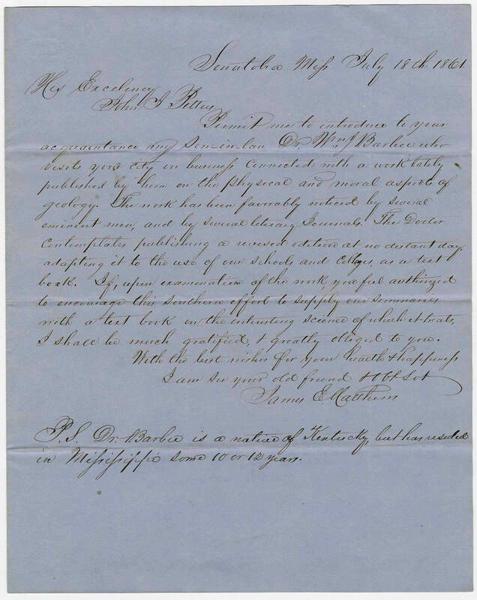 Senatobia Miss July 18th 1861
His Excelency
John J Pettus
Permit me to introduce to your
acquaintance my Son in law Dr Wm J Barbee who
visits your city on business connected with a work lately
published by them on the physical and moral aspects of
geology. The work has been favorably noticed by several
eminent men, and by several literary Journals. The Doctor
Contemplates publishing a revised edition at no distant day
adapting it to the use of our schools and Colleges, as a text
book. If, upon examination of the work you feel authorized
to encourage this Southern effort to supply our seminaries
with a text book on the interesting science of which it treats,
I shall be much gratified, & greatly obliged to you.
With the best wishes for your health & happiness
I am Sir your old friend & Obt Svt
James E Matthews
P.S. Dr. Barbee is a native of Kentucky, but has resided
in Mississippi some 10 or 12 years.